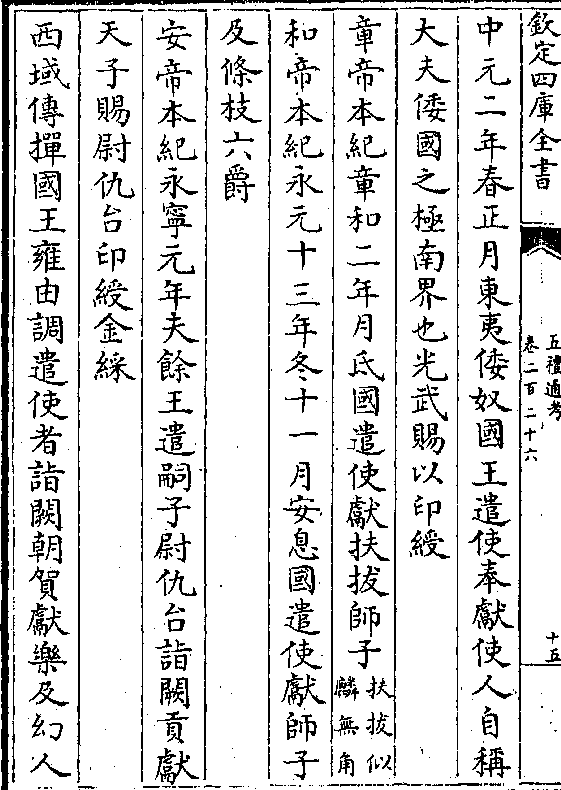 欽定四庫全書
五禮通考
卷二百二十六
十五
中元二年春正月東夷倭奴國王遣使奉獻使人自稱
大夫倭國之極南界也光武賜以印綬
章帝本紀章和二年月氏國遣使獻扶拔師子扶拔似麟無角
和帝本紀永元十三年冬十一月安息國遣使獻師子
及條枝六爵
安帝本紀永寧元年夫餘王遣嗣子尉仇台詣闕貢獻
天子賜尉仇台印綬金綵
西域傳撣國王雍由調遣使者詣闕朝賀獻樂及幻人